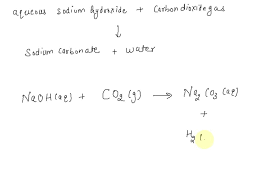 aqueous sodium hydroxide + Carbondioxide gas
↓
Sodium Carbonate + water
NaOH(aq) + CO2(g) → Na2CO3(aq)
+
H2